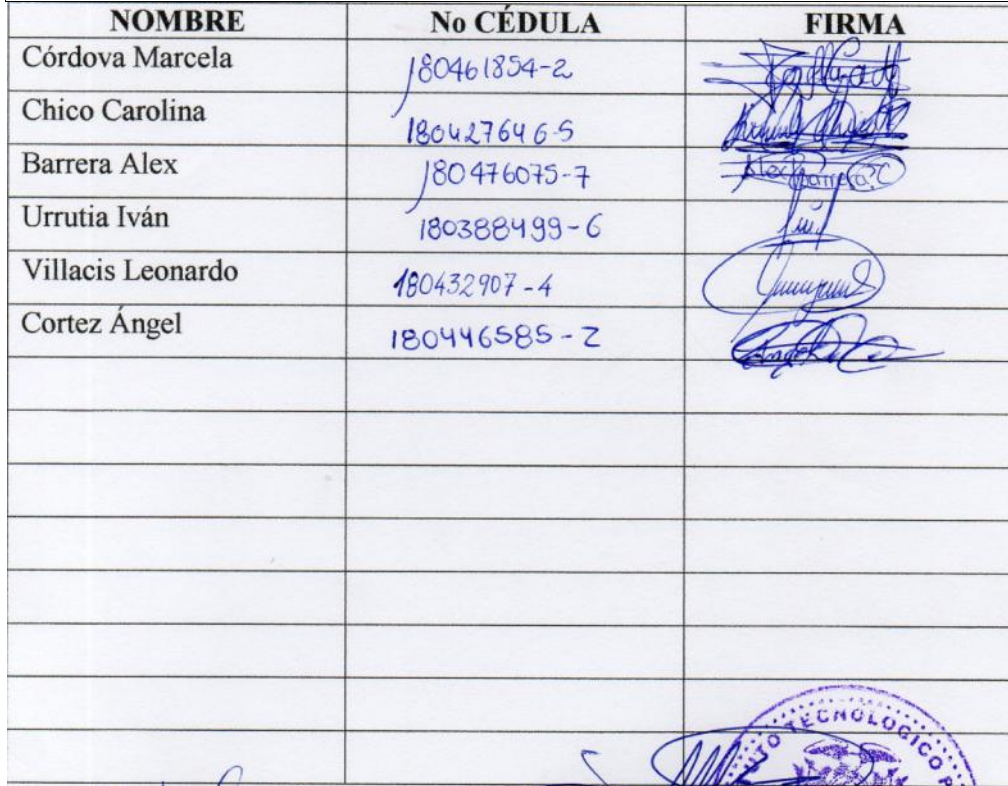 NOMBRE No CÉDULA FIRMA
Córdova Marcela 180461854-2
Chico Carolina 180427646-5
Barrera Alex 180476075-7 Alex Barrera
Urrutia Iván 180388499-6
Villacis Leonardo 180432907-4
Cortez Ángel 180446585-2
TECNOLOGICO